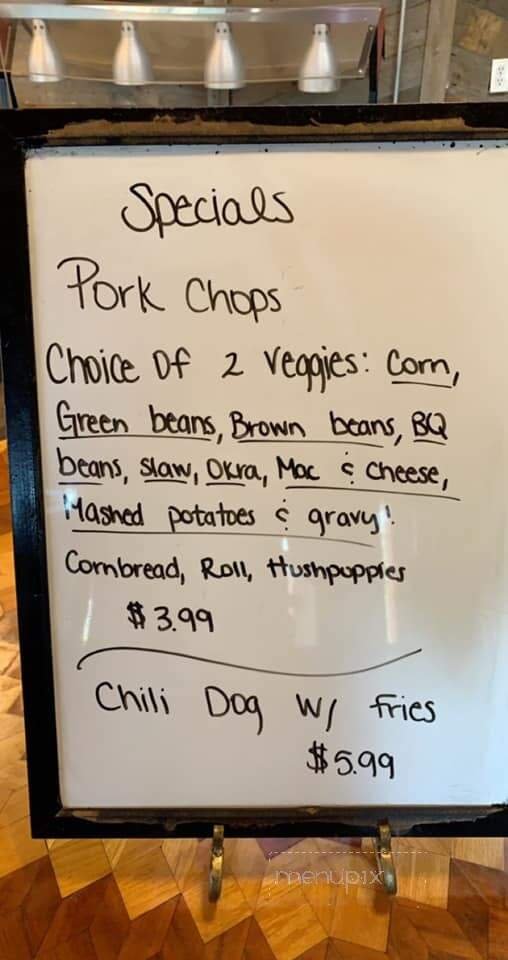 Specials
Pork Chops
Choice Of 2 Veggies: Corn,
Green beans, Brown beans, BQ
beans, Slaw, Okra, Mac & Cheese,
Mashed potatoes & gravy!
Cornbread, Roll, Hushpuppies
$3.99
Chili Dog W/ fries
$5.99
menupix